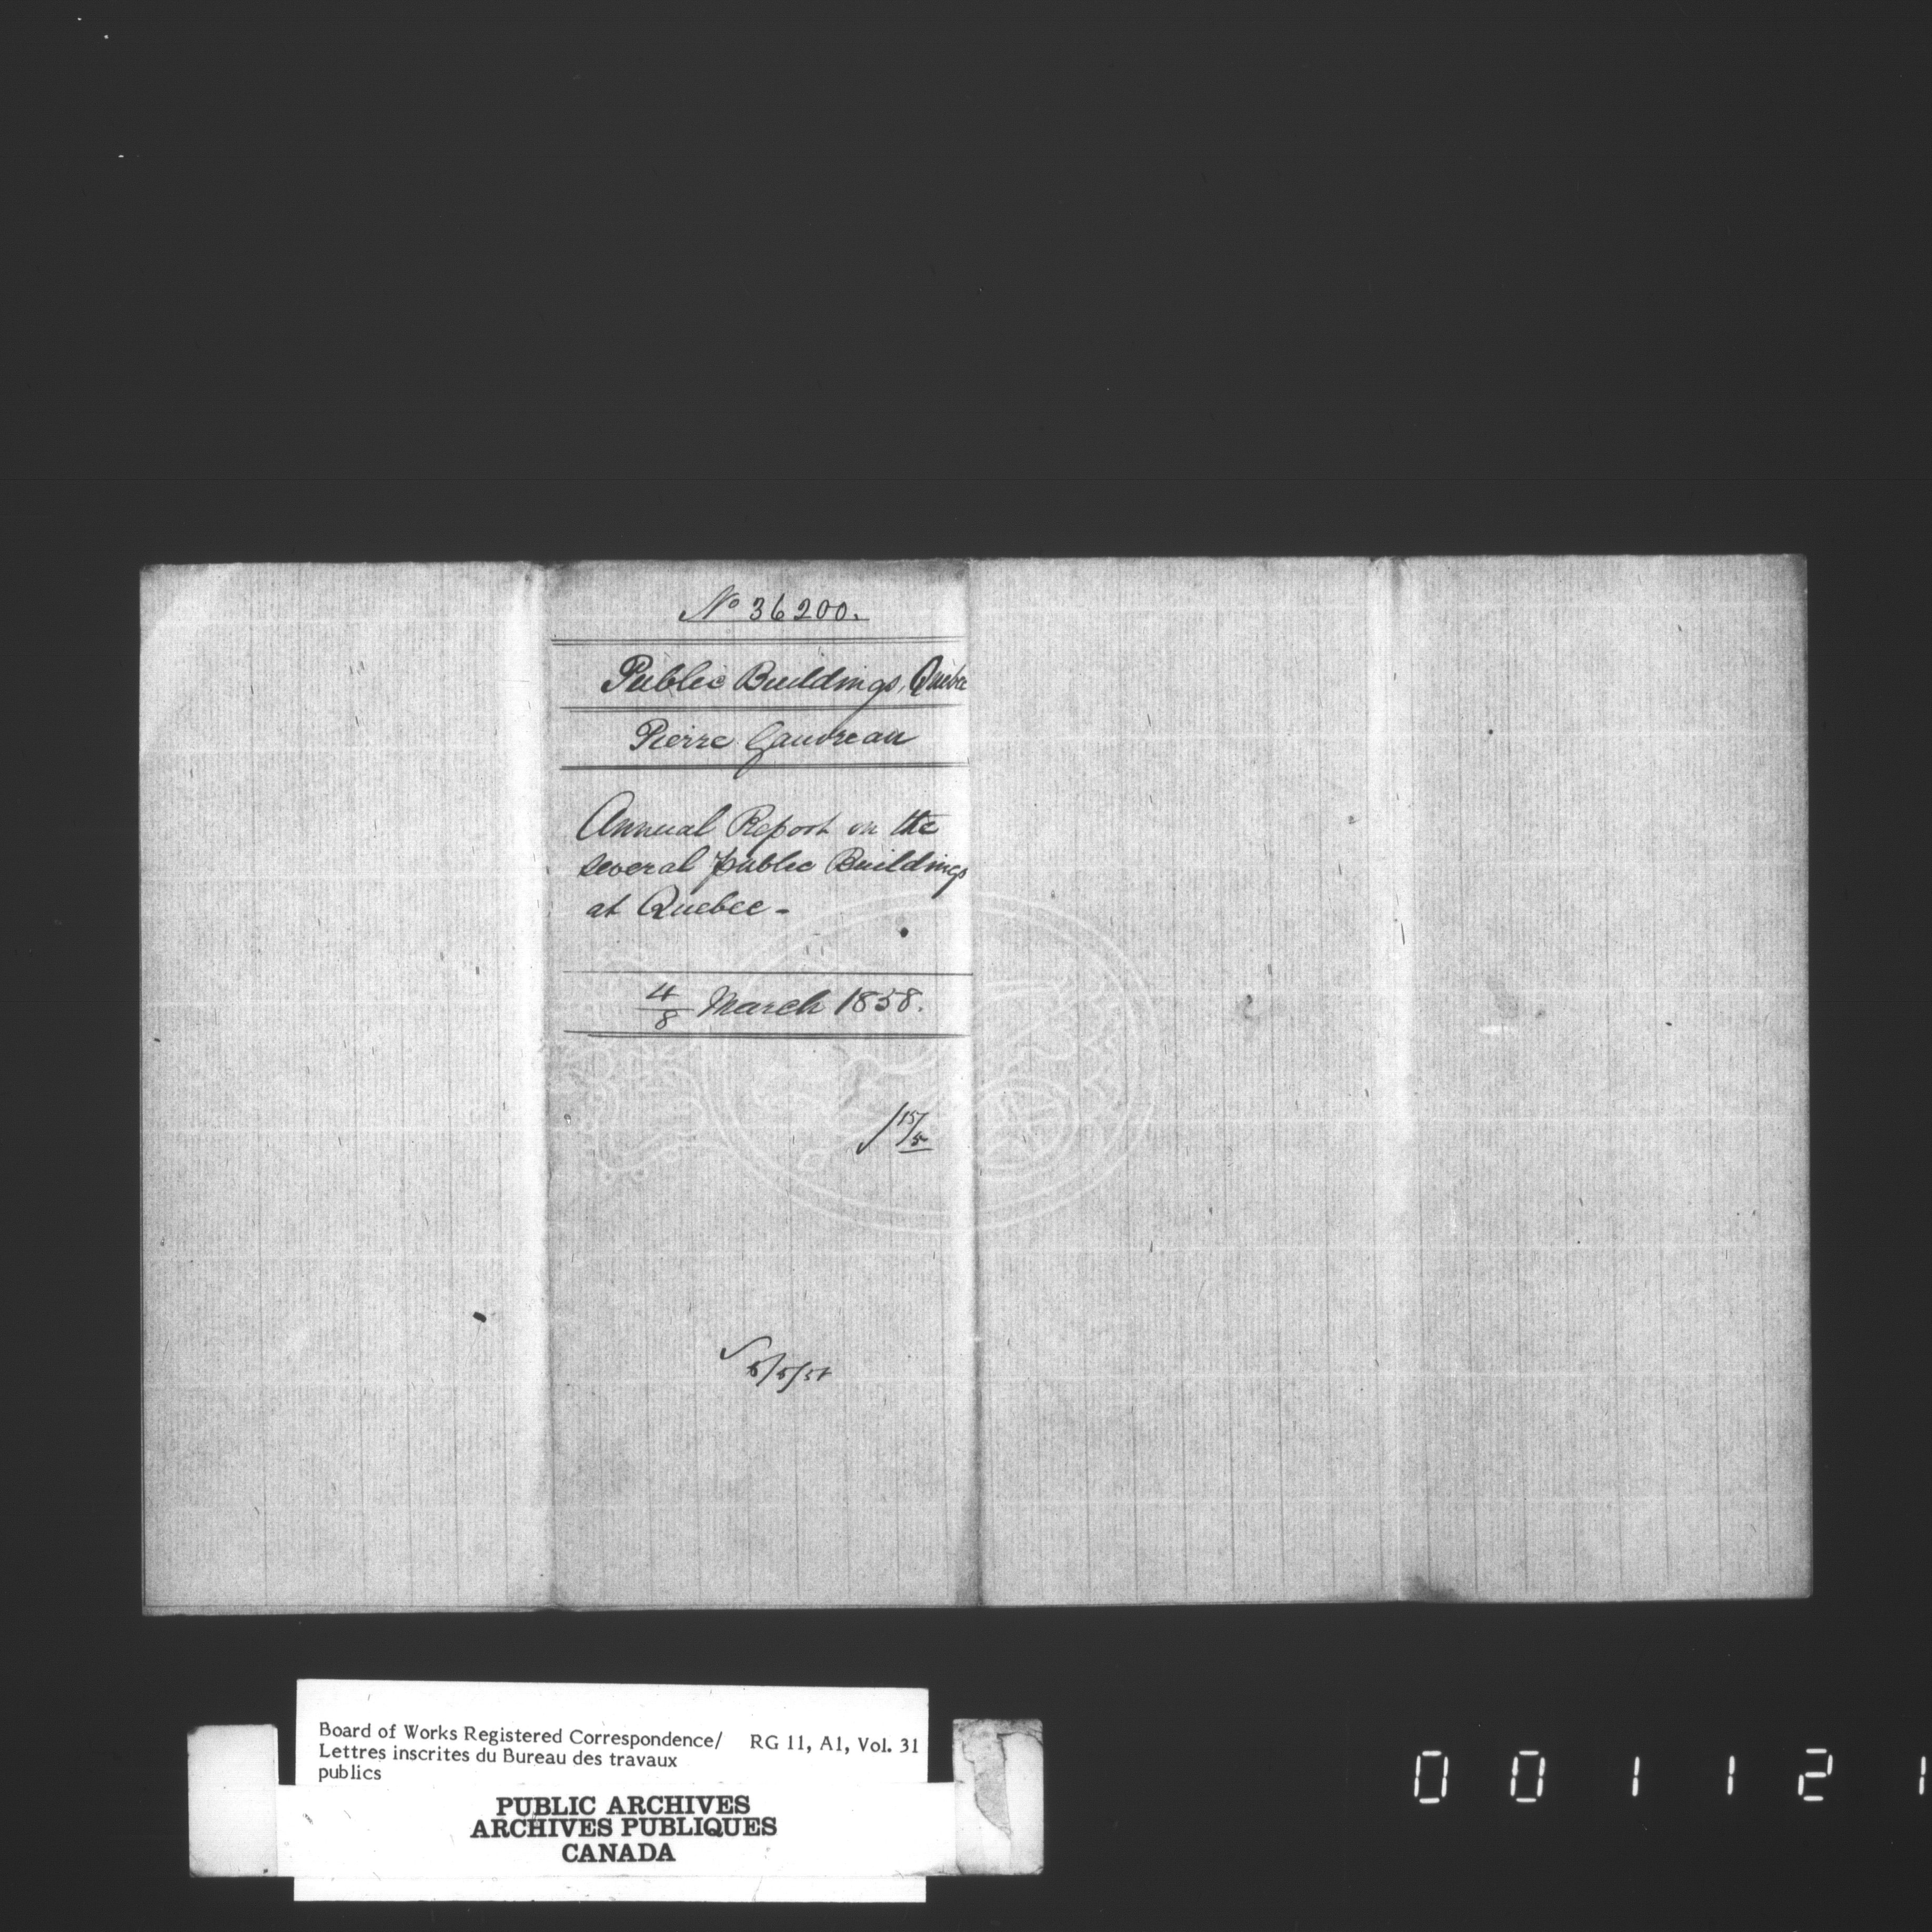 No 36200.
Public Buildings, Quebec
Pierre Gauvreau
Annual Report on the
several public Buildings
at Quebec -
4/8 March 1858.
15/5
Board of Works Registered Correspondence/ RG 11, A1, Vol. 31
Lettres inscrites du Bureau des travaux
publics
PUBLIC ARCHIVES
ARCHIVES PUBLIQUES
CANADA
001121